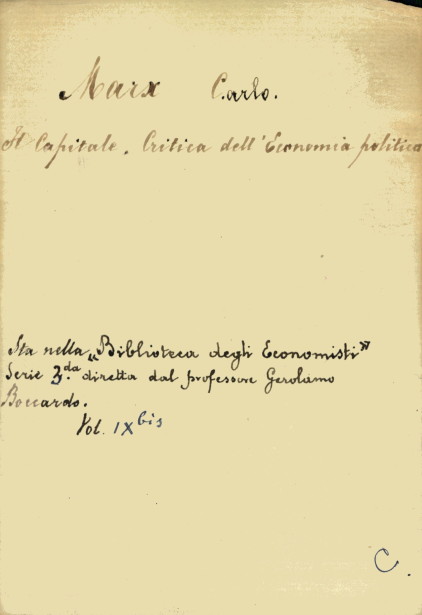 Marx Carlo.
Il Capitale. Critica dell'Economia politica
Sta nella „Biblioteca degli Economisti”
Serie 3.da diretta dal professore Gerolamo
Boccardo.
Vol. IX bis
C.